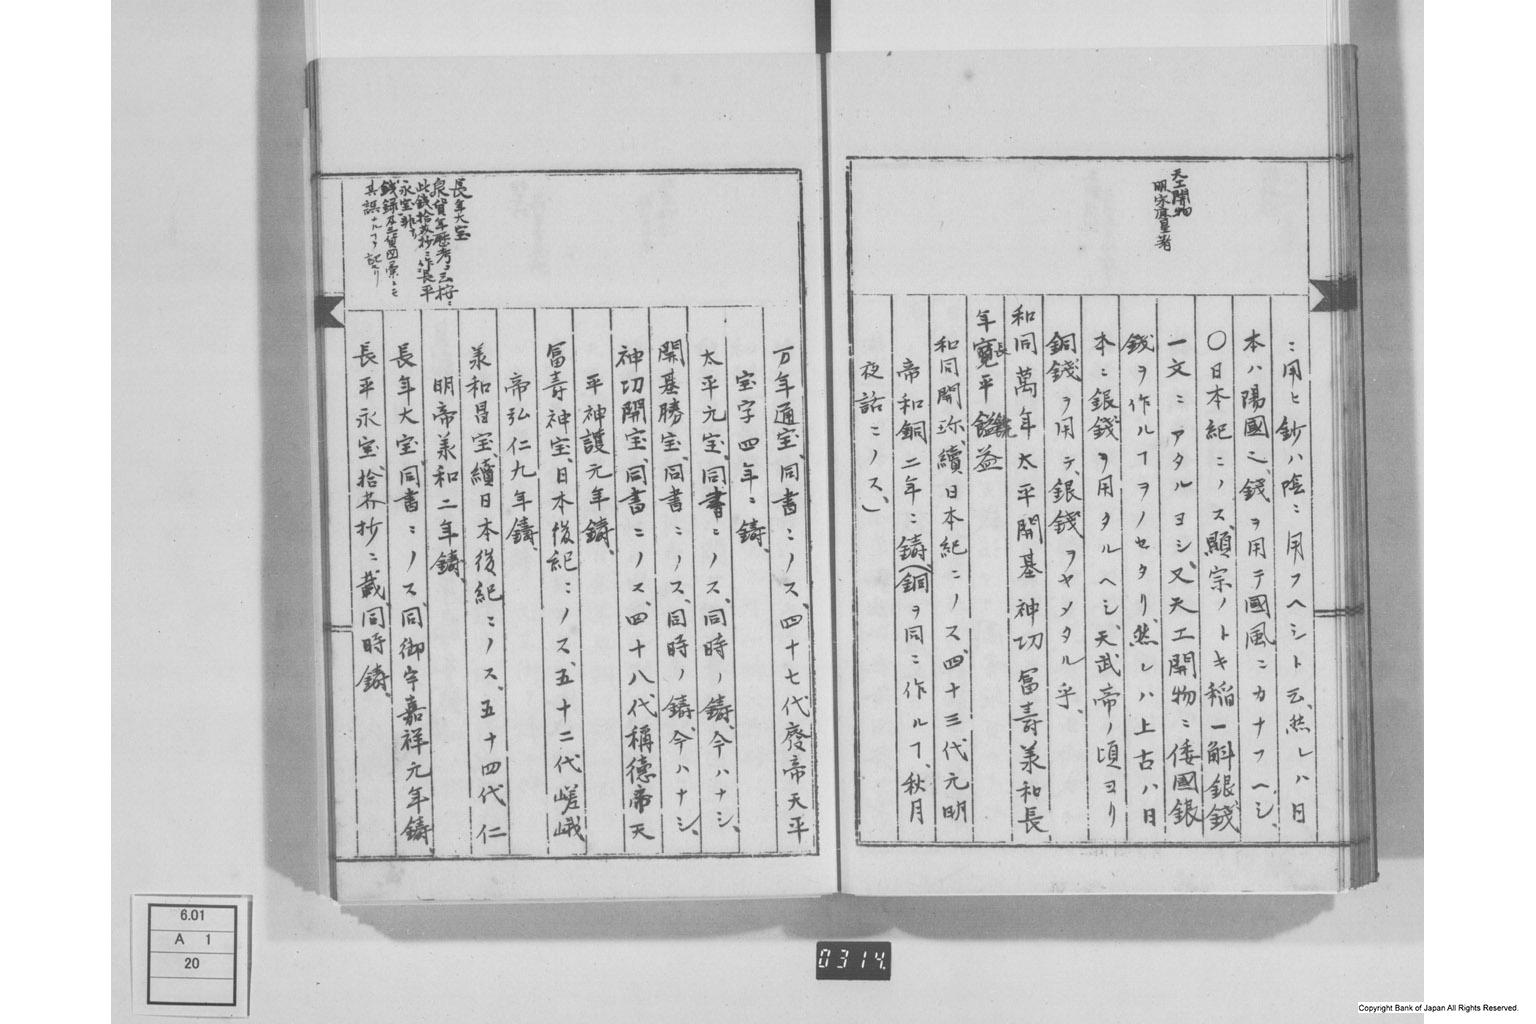 天工開物
明宋應星著
ニ用ヒ鈔ハ陰ニ用フヘシト云、然レハ日
本ハ陽國之、錢ヲ用テ國風ニカナフヘシ、
〇日本紀ニノス、顯宗ノトキ稲一斛銀錢
一文ニアタルヨシ、又天工開物ニ倭國銀
錢ヲ作ルヿヲノセタリ、然レハ上古ハ日
本ニ銀錢ヲ用タルヘシ、天武帝ノ頃ヨリ
銅錢ヲ用テ、銀錢ヲヤメタル乎、
和同萬年太平開基神功冨壽羕和長
年寛長平饒益
和同開珎、續日本紀ニノス、四十三代元明
帝和銅二年ニ鑄(銅ヲ同ニ作ルヿ、秋月
夜話ニノス、)
長年大宝
泉貨年歴考ニ云
此錢拾芥抄ニ作長平
永宝
錢録
其誤ナルヿヲ記セリ
万年通宝、同書ニノス、四十七代廢帝天平
宝字四年ニ鑄、
太平元宝、同書ニノス、同時ノ鑄、今ハナシ、
開基勝宝、同書ニノス、同時ノ鑄、今ハナシ、
神功開宝、同書ニノス、四十八代稱德帝天
平神護元年鑄、
冨壽神宝、日本後紀ニノス、五十二代嵯峨
帝弘仁九年鑄、
羕和昌宝、續日本後紀ニノス、五十四代仁
明帝羕和二年鑄、
長年大宝、同書ニノス、同御宇嘉祥元年鑄、
長平永宝拾芥抄ニ載、同時鑄、
6.01
A 1
20
0314.
Copyright Bank of Japan All Rights Reserved.